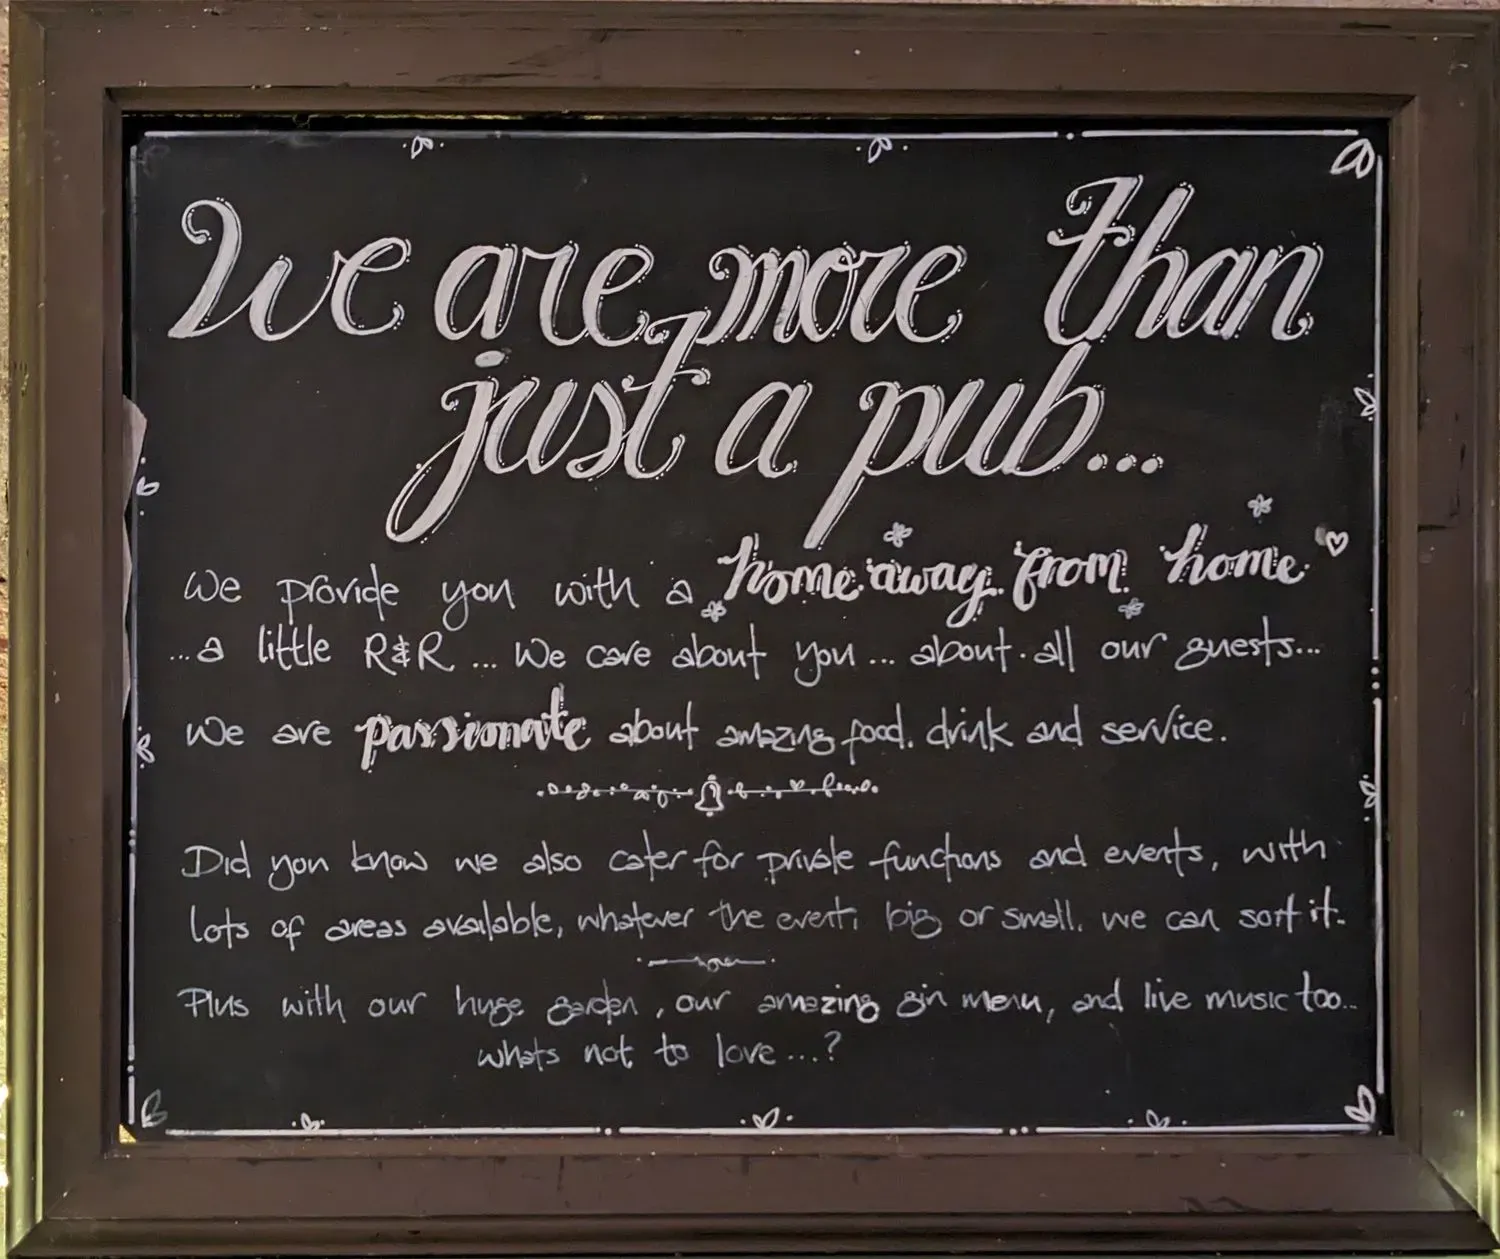 We are more than
just a pub...
We provide you with a home away from home
...a little R&R... We care about you... about all our guests...
We are passionate about amazing food, drink and service.
Did you know we also cater for private functions and events, with
lots of areas available, whatever the event, big or small, we can sort it.
Plus with our huge garden, our amazing gin menu, and live music too...
whats not to love...?